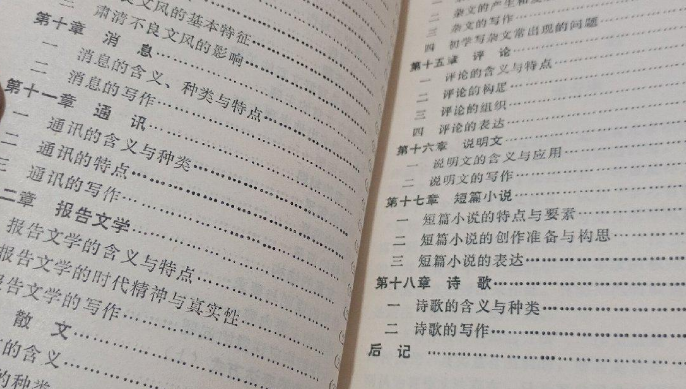 文风的基本特征
二 肃清不良文风的影响
第十章 消 息
一 消息的含义、种类与特点
二 消息的写作
第十一章 通 讯
一 通讯的含义与种类
二 通讯的特点
三 通讯的写作
二章 报告文学
报告文学的含义与特点
报告文学的时代精神与真实性
报告文学的写作
散 文
的含义
的种类
二 杂文的产生和
三 杂文的写作
四 初学写杂文常出现的问题
第十五章 评 论
一 评论的含义与特点
二 评论的构思
三 评论的组织
四 评论的表达
第十六章 说明文
一 说明文的含义与应用
二 说明文的写作
第十七章 短篇小说
一 短篇小说的特点与要素
二 短篇小说的创作准备与构思
三 短篇小说的表达
第十八章 诗 歌
一 诗歌的含义与种类
二 诗歌的写作
后 记